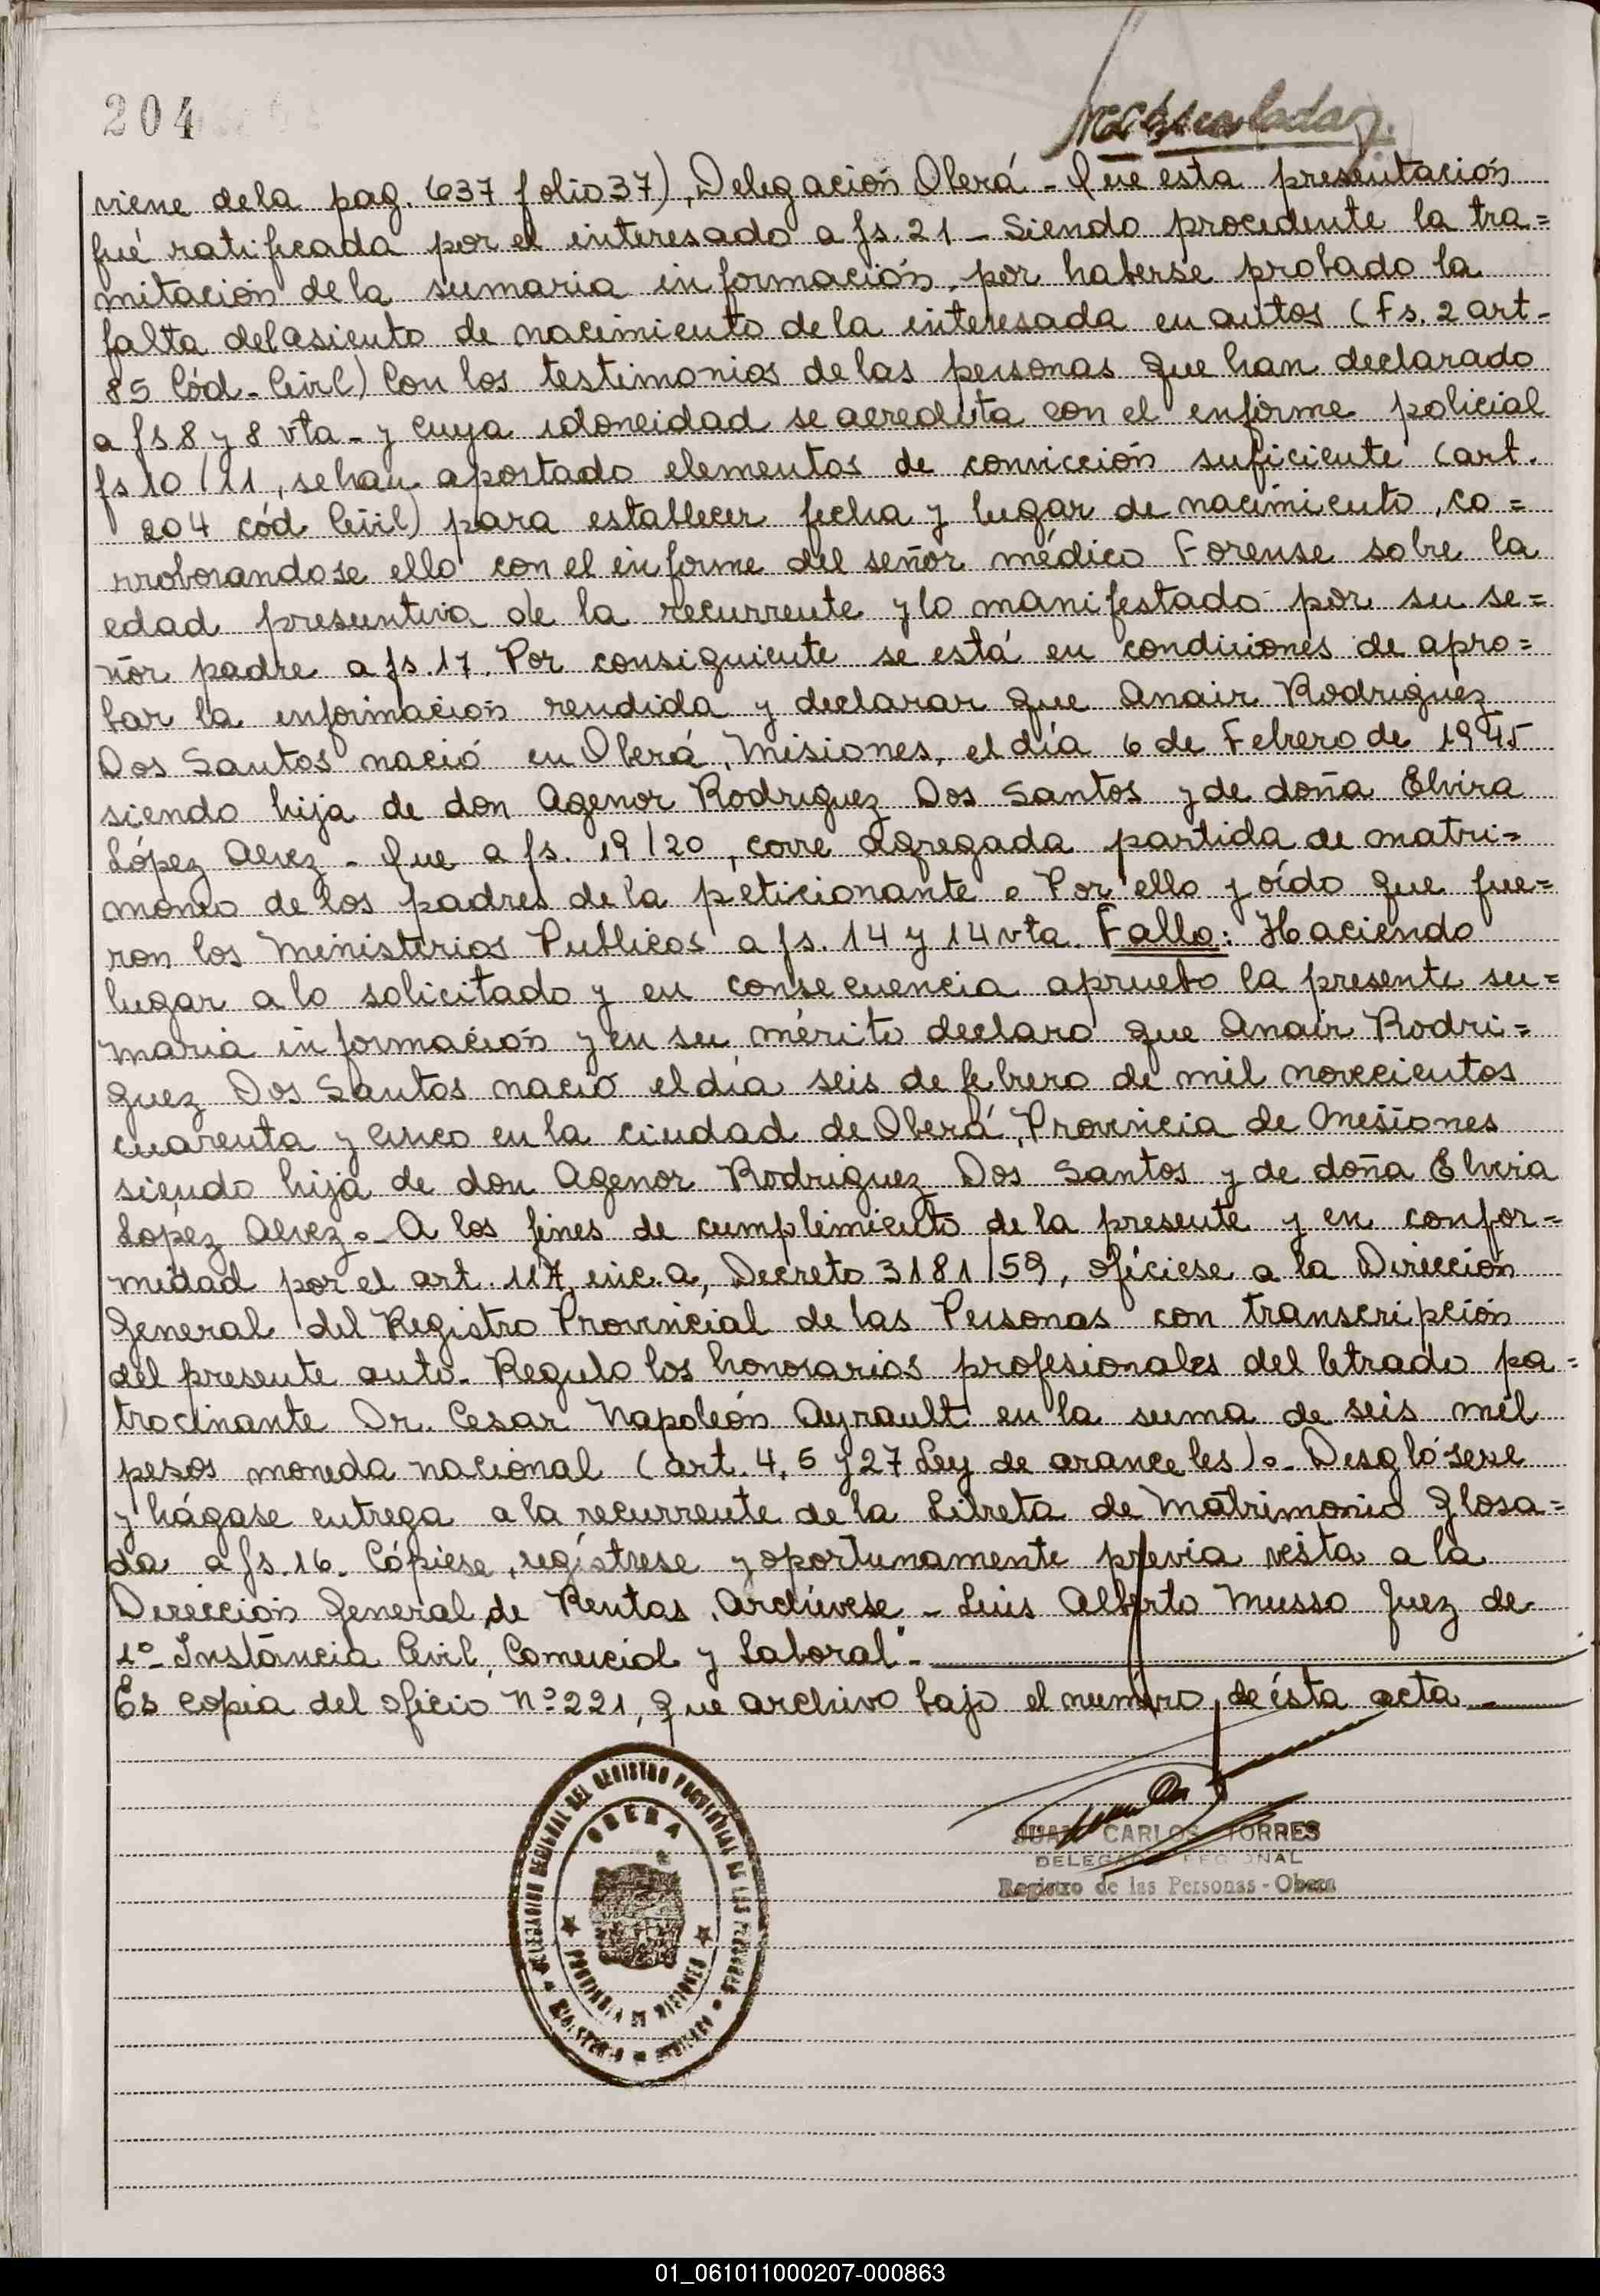 204
viene dela pag. (637 folio 37), Delegación Oberá - Que esta presentación
fué ratificada por el interesado a fs. 21 - Siendo procedente la tra=
mitación de la sumaria información, por haberse probado la
falta del asiento de nacimiento de la interesada en autos (Fs. 2 art-
85 Cód. Civil) Con los testimonios de las personas que han declarado
a fs 8 y 8 vta - y cuya idoneidad se acredita con el informe policial
fs 10/11, se han aportado elementos de convicción suficiente (art.
204 cód Civil) para establecer fecha y lugar de nacimiento, co=
rroborandose ello con el informe del señor médico Forense sobre la
edad presuntiva de la recurrente y lo manifestado por su se=
ñor padre a fs. 17. Por consiguiente se está en condiciones de apro=
bar la información rendida y declarar que Anair Rodriguez
Dos Santos nació en Oberá, Misiones, el día 6 de Febrero de 1945
siendo hija de don Agenor Rodriguez Dos Santos y de doña Elvira
López Alvez - Que a fs. 19/20, corre agregada partida de matri=
monio de los padres de la peticionante. Por ello y oído que fue=
ron los Ministerios Publicos a fs. 14 y 14 vta. Fallo: Haciendo
lugar a lo solicitado y en consecuencia apruebo la presente su=
maria información y en su mérito declaro que Anair Rodri=
guez Dos Santos nació el día seis de febrero de mil novecientos
cuarenta y cinco en la ciudad de Oberá, Provincia de Misiones
siendo hija de don Agenor Rodriguez Dos Santos y de doña Elvira
López Alvez. - A los fines de cumplimiento de la presente y en confor=
midad por el art. 117, inc. a, Decreto 3181/59, ofíciese a la Dirección
General del Registro Provincial de las Personas con transcripción
del presente auto. Regulo los honorarios profesionales del letrado pa=
trocinante Dr. Cesar Napoleón Ayrault en la suma de seis mil
pesos moneda nacional (art. 4, 5 y 27 Ley de aranceles). - Desglósese
y hágase entrega a la recurrente de la Libreta de Matrimonio glosa=
da a fs. 16. Cópiese, regístrese y oportunamente previa vista a la
Dirección General de Rentas, Archívese - Luis Alberto Musso Juez de
1º Instancia Civil, Comercial y Laboral" -
Es copia del oficio Nº 221, que archivo bajo el número de ésta acta -
DELEGACION REGIONAL DEL REGISTRO PROVINCIAL DE LAS PERSONAS
OBERA
PROVINCIA DE MISIONES
JUAN CARLOS TORRES
DELEGADO REGIONAL
Registro de las Personas - Obera
01_061011000207-000863